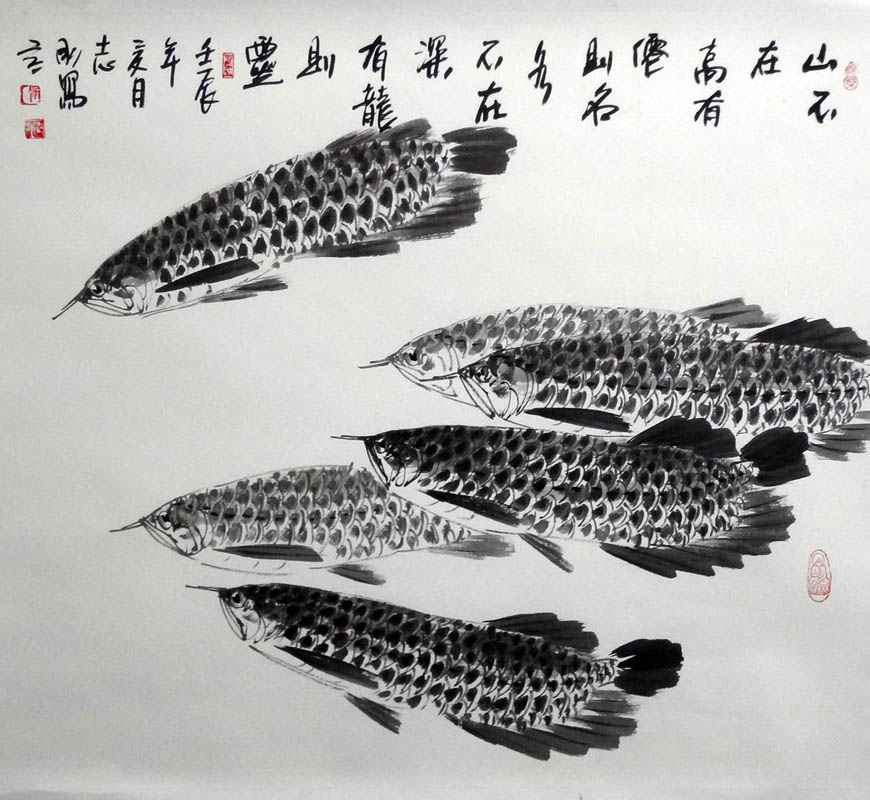 山不
在
高有
僊
則名
水
不在
深
有龍
則
靈
壬辰
年
亥月
志
寫